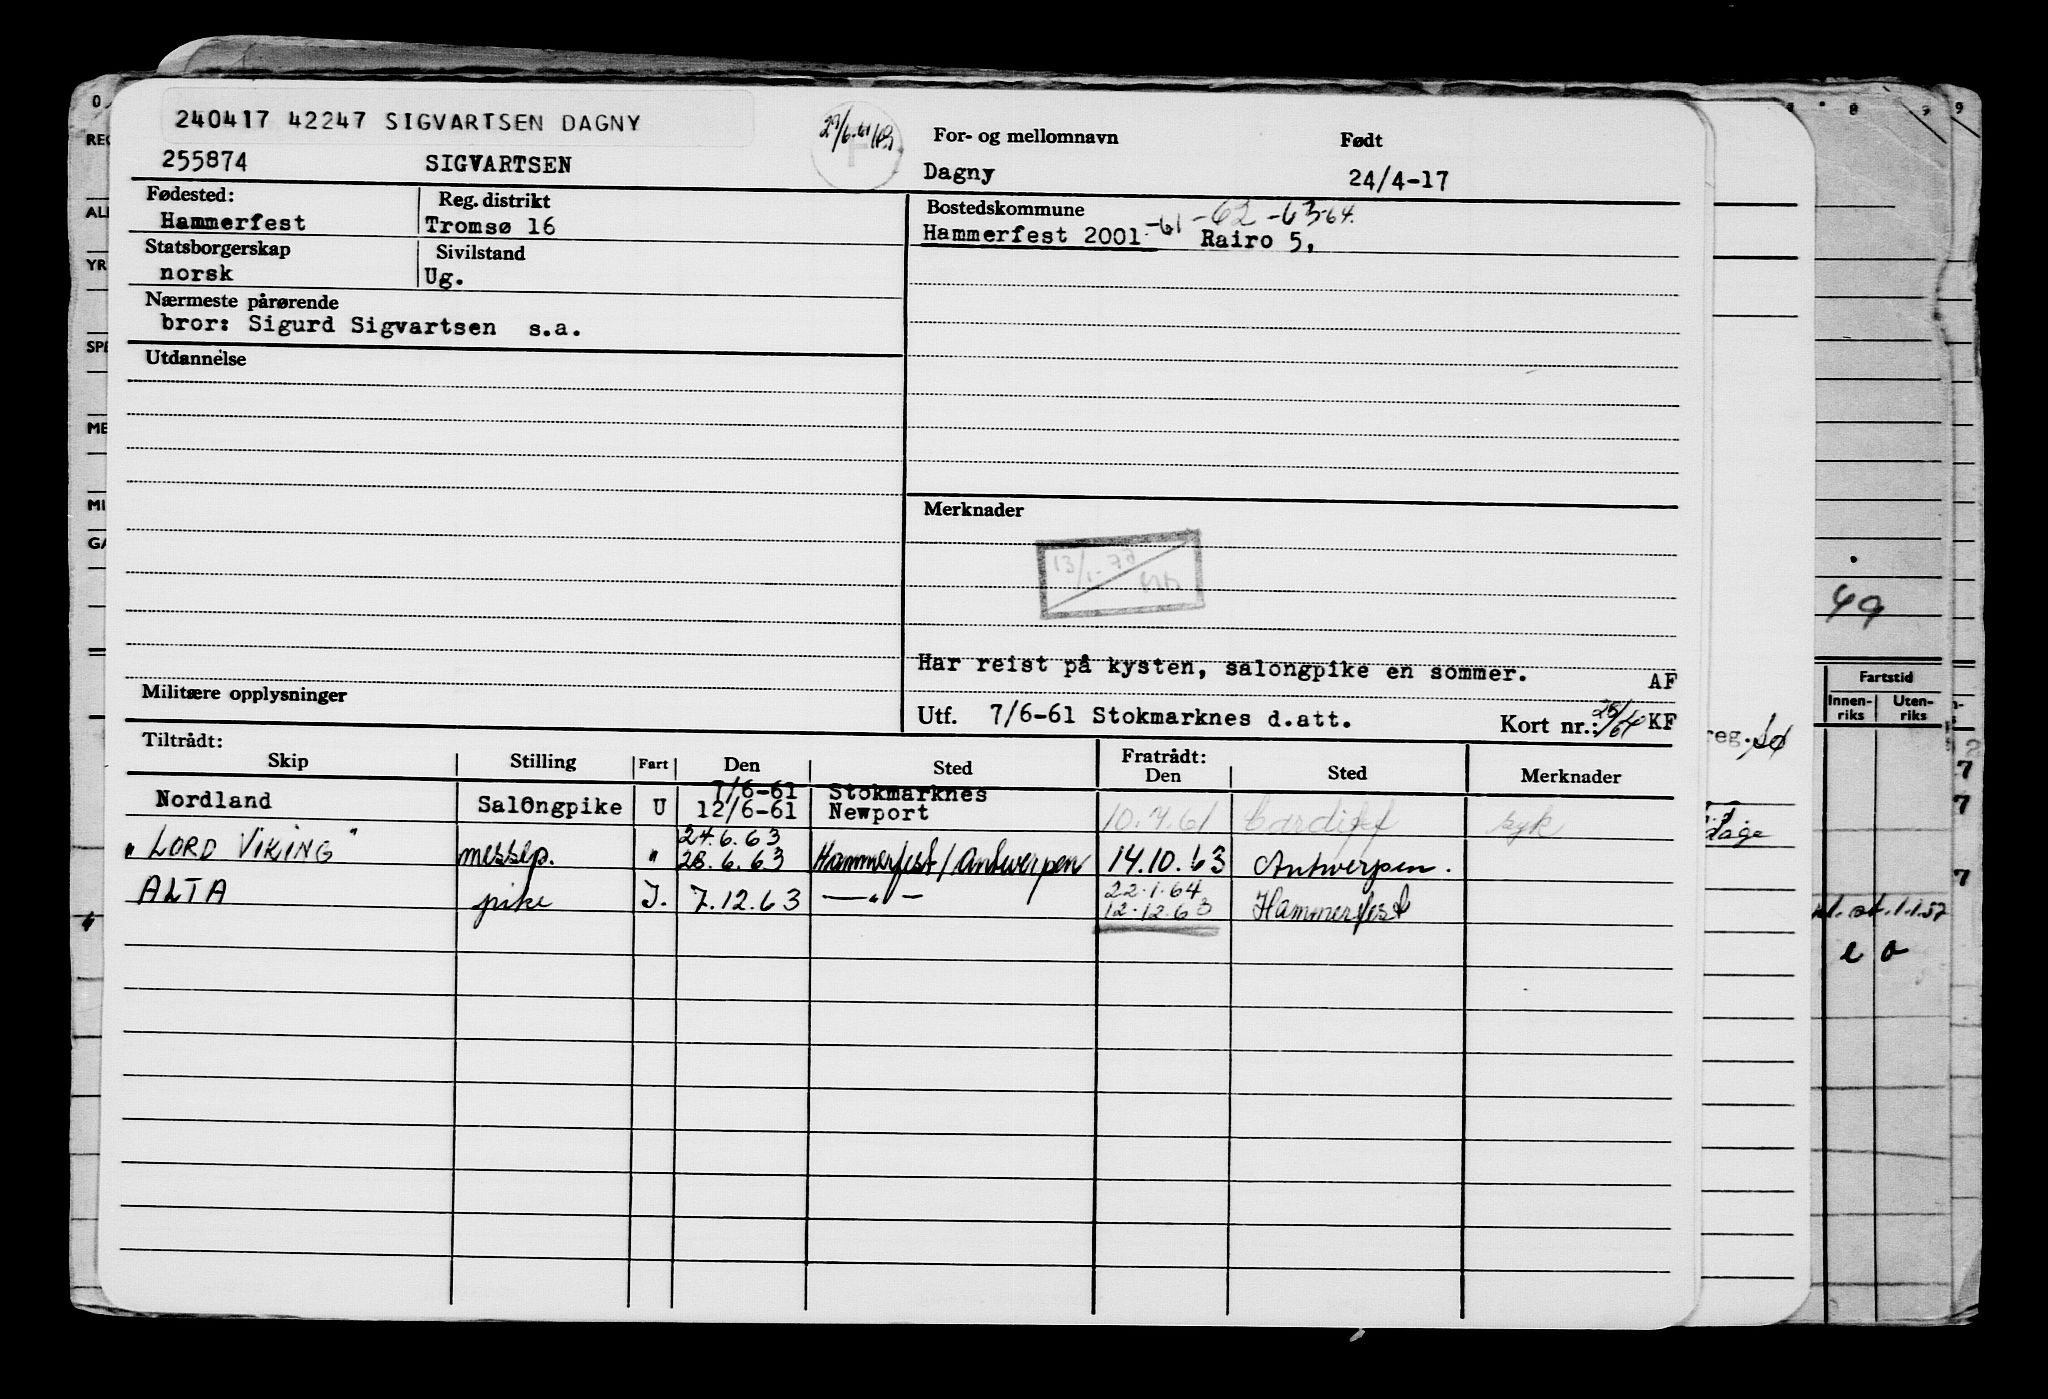 240417 42247 SIGVARTSEN DAGNY
27/6-61
255874 SIGVARTSEN
For- og mellomnavn
Dagny
Født
24/4-17
Fødested:
Hammerfest
Reg. distrikt
Tromsø 16
Statsborgerskap
norsk
Sivilstand
Ug.
Nærmeste pårørende
bror: Sigurd Sigvartsen s.a.
Utdannelse
Bostedskommune
Hammerfest 2001 -61 -62 -63-64.
Rairo 5,
Merknader
Har reist på kysten, salongpike en sommer.
AF
Militære opplysninger
Utf. 7/6-61 Stokmarknes d.att.
Kort nr.: KF
Tiltrådt: Fratrådt:
Skip Stilling Fart Den Sted Den Sted Merknader
7/6-61 Stokmarknes
Nordland Salongpike U 12/6-61 Newport 10.7.61 Cardiff syk
24.6.63
"LORD VIKING" messep. " 28.6.63 Hammerfest/Antwerpen 14.10.63 Antwerpen.
22.1.64
ALTA pike I. 7.12.63 —"— 12.12.63 Hammerfest
49
Fartstid
Innen-riks Uten-riks
reg.
dage
1.1.57